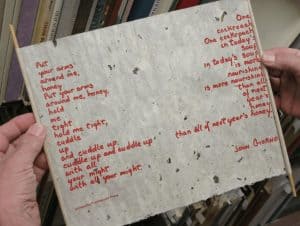 Put
your arms
around me,
honey
Put your arms
around me, honey.
hold
me
tight
hold me tight,
cuddle
up
and cuddle up
cuddle up and cuddle up
with all
your might
with all your might.
One
cockroach
One cockroach
in today's
soup
in today's soup
is more
nourishing
is more nourishing
than all
of next
year's
honey
than all of next year's honey.
John Giorno